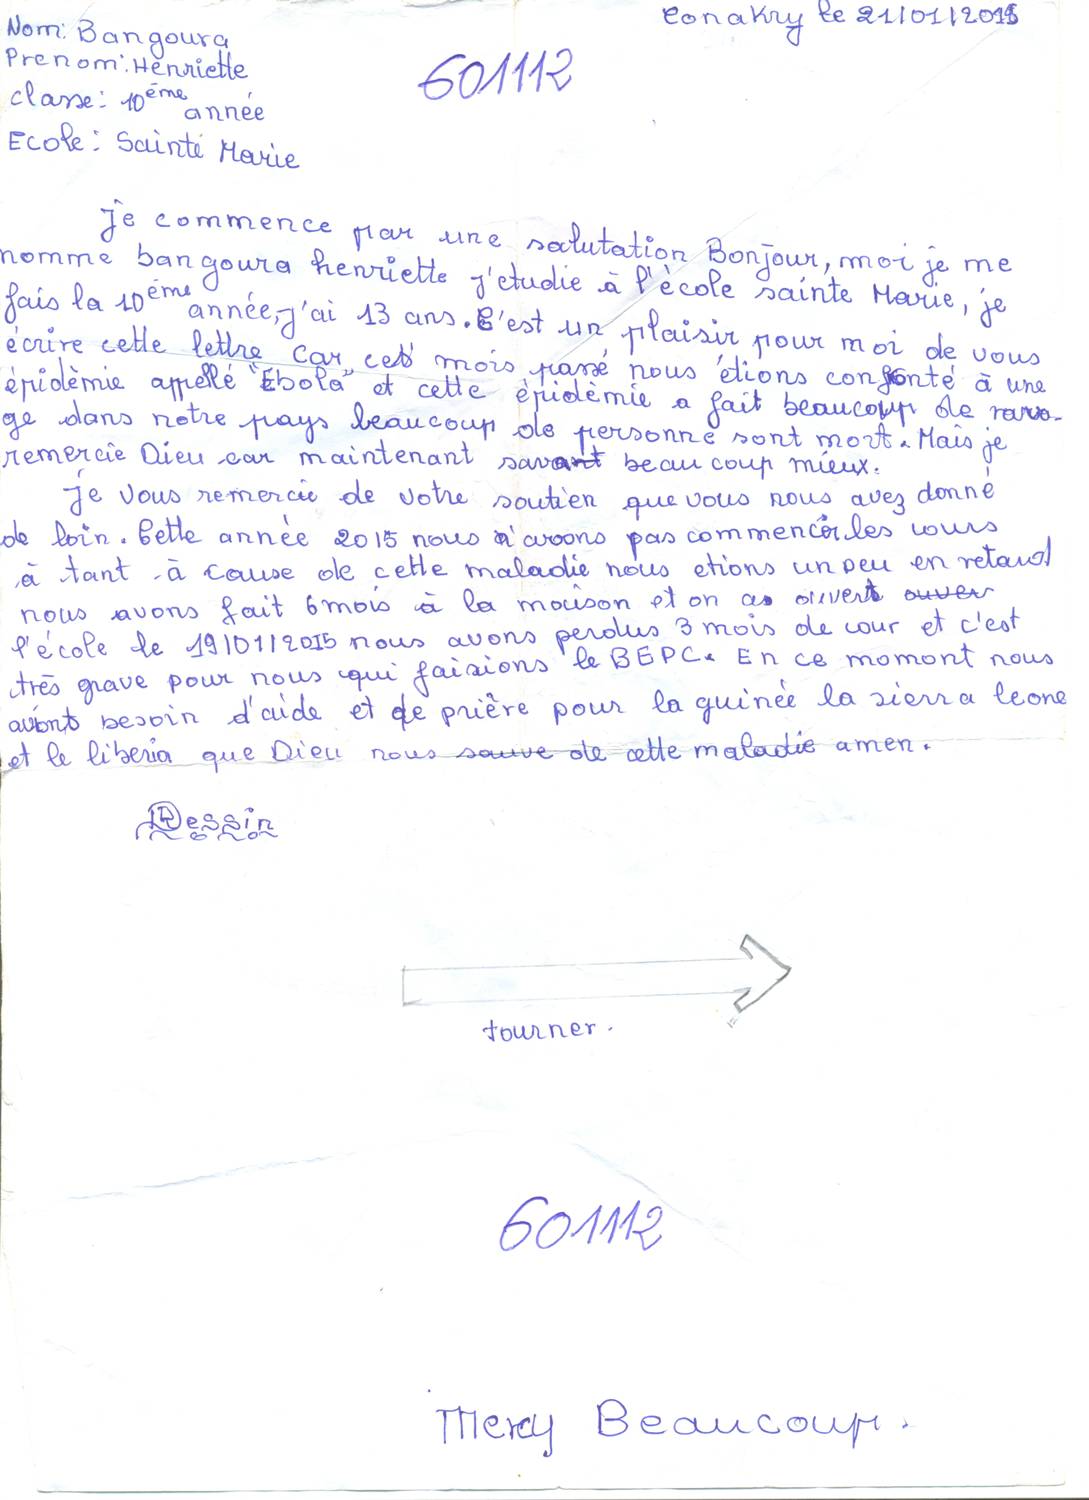 Conakry le 21/01/2015
Nom: Bangoura
Prenom: Henriette
601112
classe: 10ème année
Ecole: Sainte Marie
Je commence par une salutation Bonjour, moi je me
nomme bangoura henriette j'etudie à l'école sainte Marie, je
fais la 10ème année, j'ai 13 ans. C'est un plaisir pour moi de vous
écrire cette lettre car ces mois passé nous étions confronté à une
épidèmie appellé "Ebola" et cette èpidèmie a fait beaucoup de rava-
ge dans notre pays beaucoup de personne sont mort. Mais je
remercie Dieu car maintenant savant beaucoup mieux.
Je vous remercie de votre soutien que vous nous avez donné
de loin. Cette année 2015 nous n'avons pas commencer les cours
à tant à cause de cette maladie nous etions un peu en retard
nous avons fait 6 mois à la maison et on a ouvert ouver
l'école le 19/01/2015 nous avons perdus 3 mois de cour et c'est
très grave pour nous qui faisions le BEPC. En ce momont nous
avont besoin d'aide et de prière pour la guinée la sierra leone
et le liberia que Dieu nous sauve de cette maladie amen.
Dessin
tourner.
601112
Mercy Beaucoup.